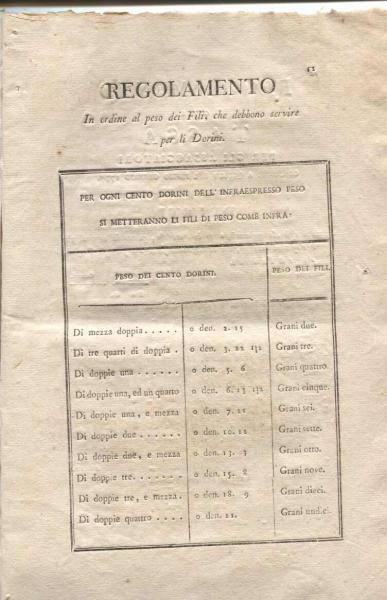 REGOLAMENTO
In ordine al peso dei Fili, che debbono servire
per li Dorini.
PER OGNI CENTO DORINI DELL' INFRAESPRESSO PESO
SI METTERANNO LI FILI DI PESO COME INFRA-
PESO DEI CENTO DORINI. PESO DEI FILI.
Di mezza doppia..... o den. 2. 15 Grani due.
Di tre quarti di doppia . o den. 3. 22 1/2 Grani tre.
Di doppie una ...... o den. 5. 6 Grani quattro.
Di doppie una, ed un quarto o den. 6. 13 1/2 Grani cinque.
Di doppie una, e mezza o den. 7. 21 Grani sei.
Di doppie due ..... o den. 10. 12 Grani sette.
Di doppie due, e mezza o den. 13. 3 Grani otto.
Di doppie tre....... o den. 15. Grani nove.
Di doppie tre, e mezza. o den. 18. 9 Grani dieci.
Di doppie quattro .... o den. 21. Grani undeci.